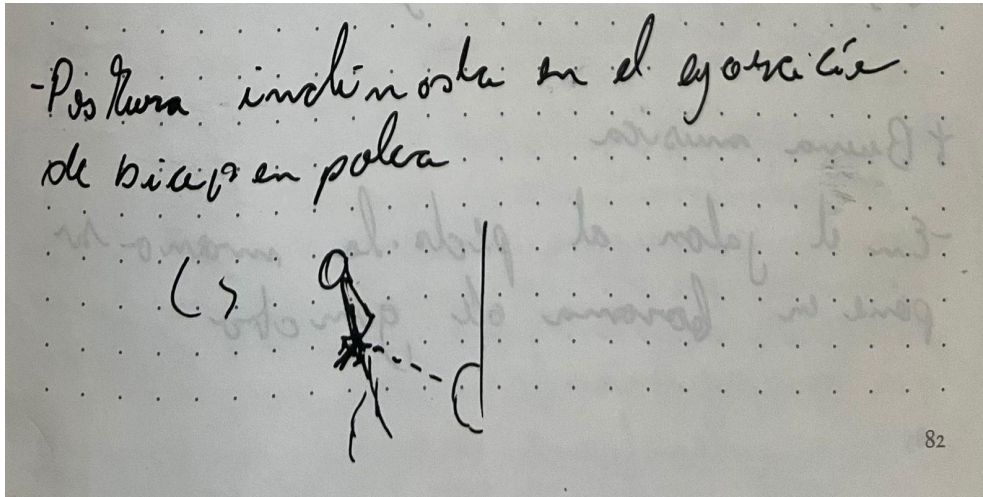 -Postura inclinada en el ejercicio
de bicep en polea
82